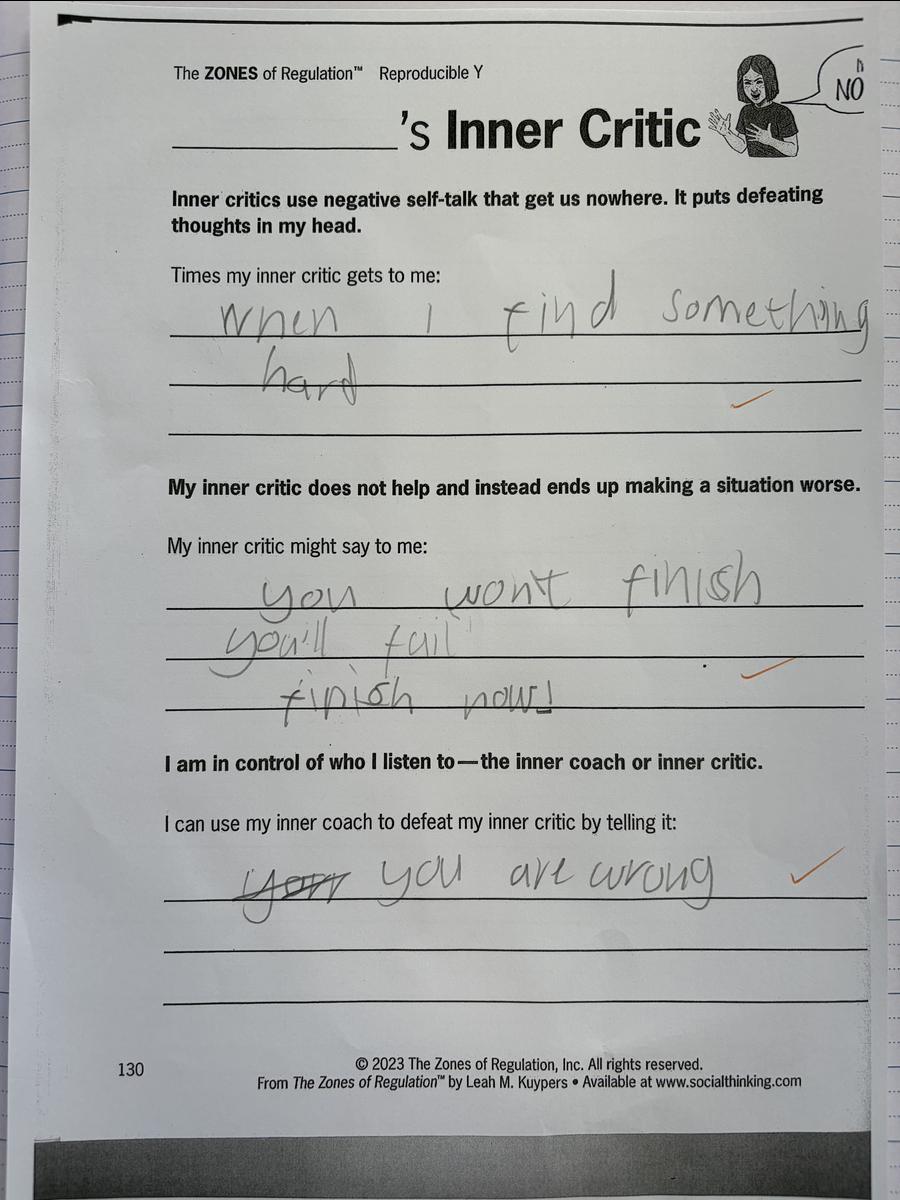 The ZONES of Regulation™ Reproducible Y
NO
's Inner Critic
Inner critics use negative self-talk that get us nowhere. It puts defeating
thoughts in my head.
Times my inner critic gets to me:
when I find something
hard
My inner critic does not help and instead ends up making a situation worse.
My inner critic might say to me:
you wont finish
you'll fail
finish now!
I am in control of who I listen to—the inner coach or inner critic.
I can use my inner coach to defeat my inner critic by telling it:
you are wrong
130
© 2023 The Zones of Regulation, Inc. All rights reserved.
From The Zones of Regulation™ by Leah M. Kuypers • Available at www.socialthinking.com